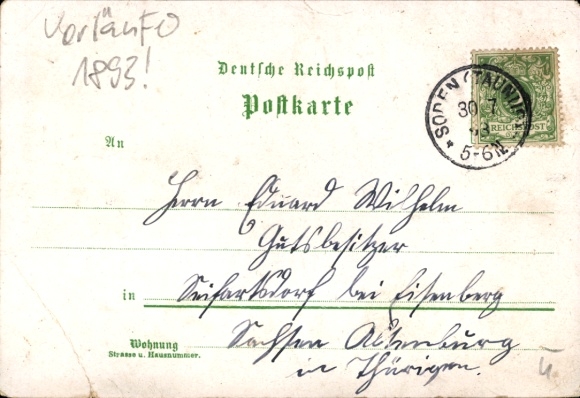 Vorläufo
1893!
Deutsche Reichspost
Postkarte
SODEN (TAUNUS)
30 7
93
5-6N
REICHSPOST
An
Herrn Eduard Wilhelm
Gutsbesitzer
in Seifartsdorf bei Eisenberg
Sachsen Altenburg
Wohnung
Strasse u. Hausnummer.
in Thürigen.